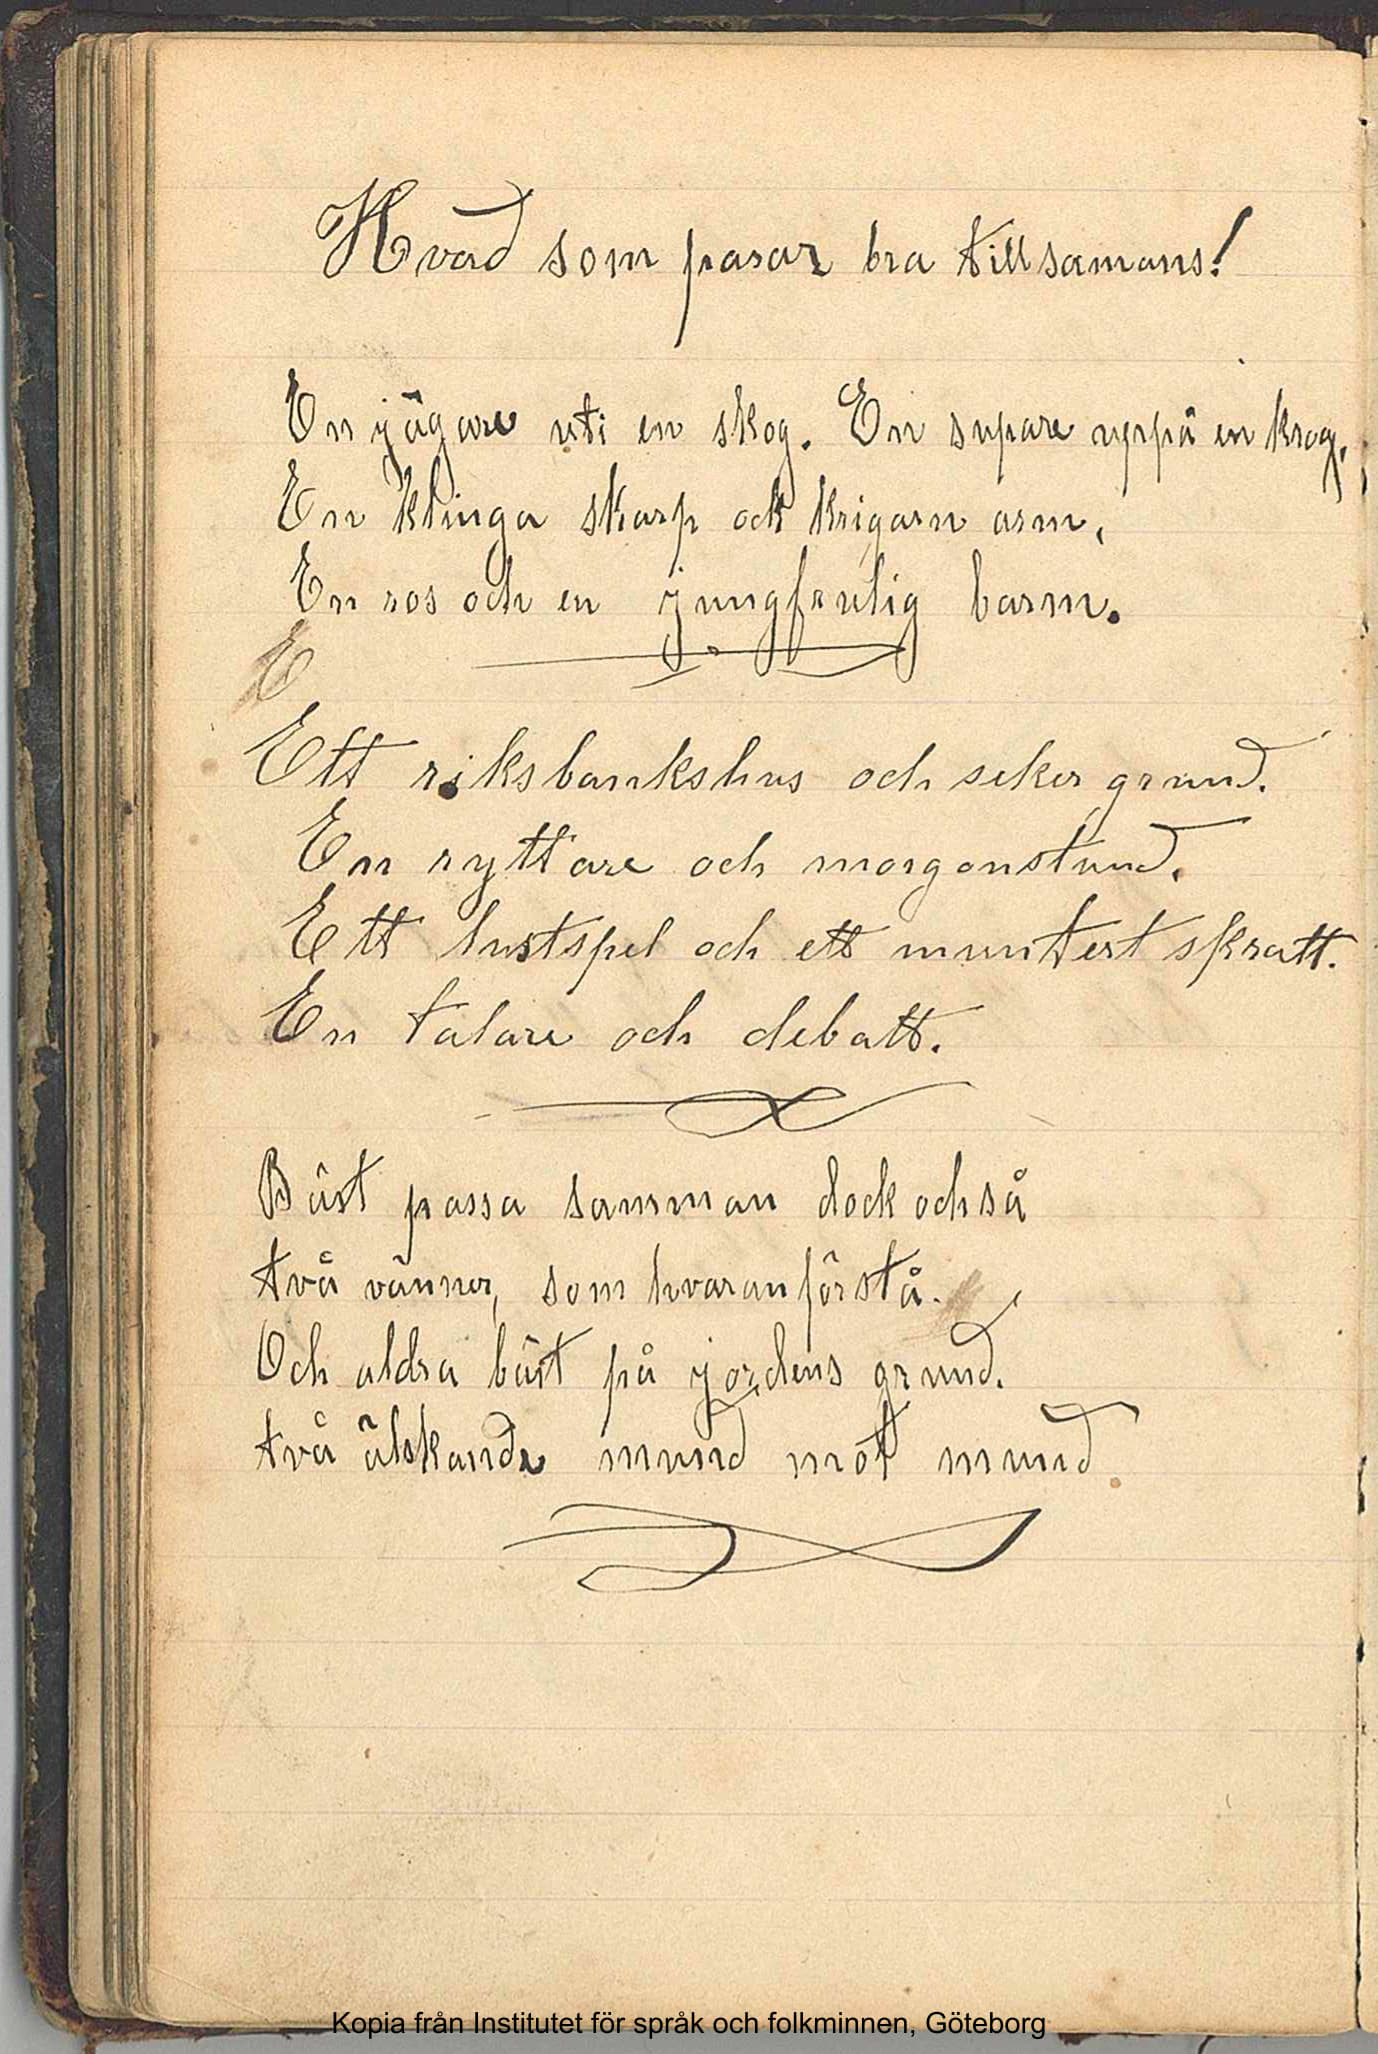 Hvad som pasar bra tillsamans!
En jägare uti en skog. En supare uppå en krog,
En klinga skarp och krigarn arm,
En ros och en jungfrulig barm.
E
Ett riksbankshus och seker grund.
En ryttare och morgonstund.
Ett lustspel och ett muntert skratt.
En talare och debatt.
Bäst passa samman dock också
två vänner, som hvaran förstå.
Och aldra bäst på jordens grund.
två älskande mund mot mund
Kopia från Institutet för språk och folkminnen, Göteborg